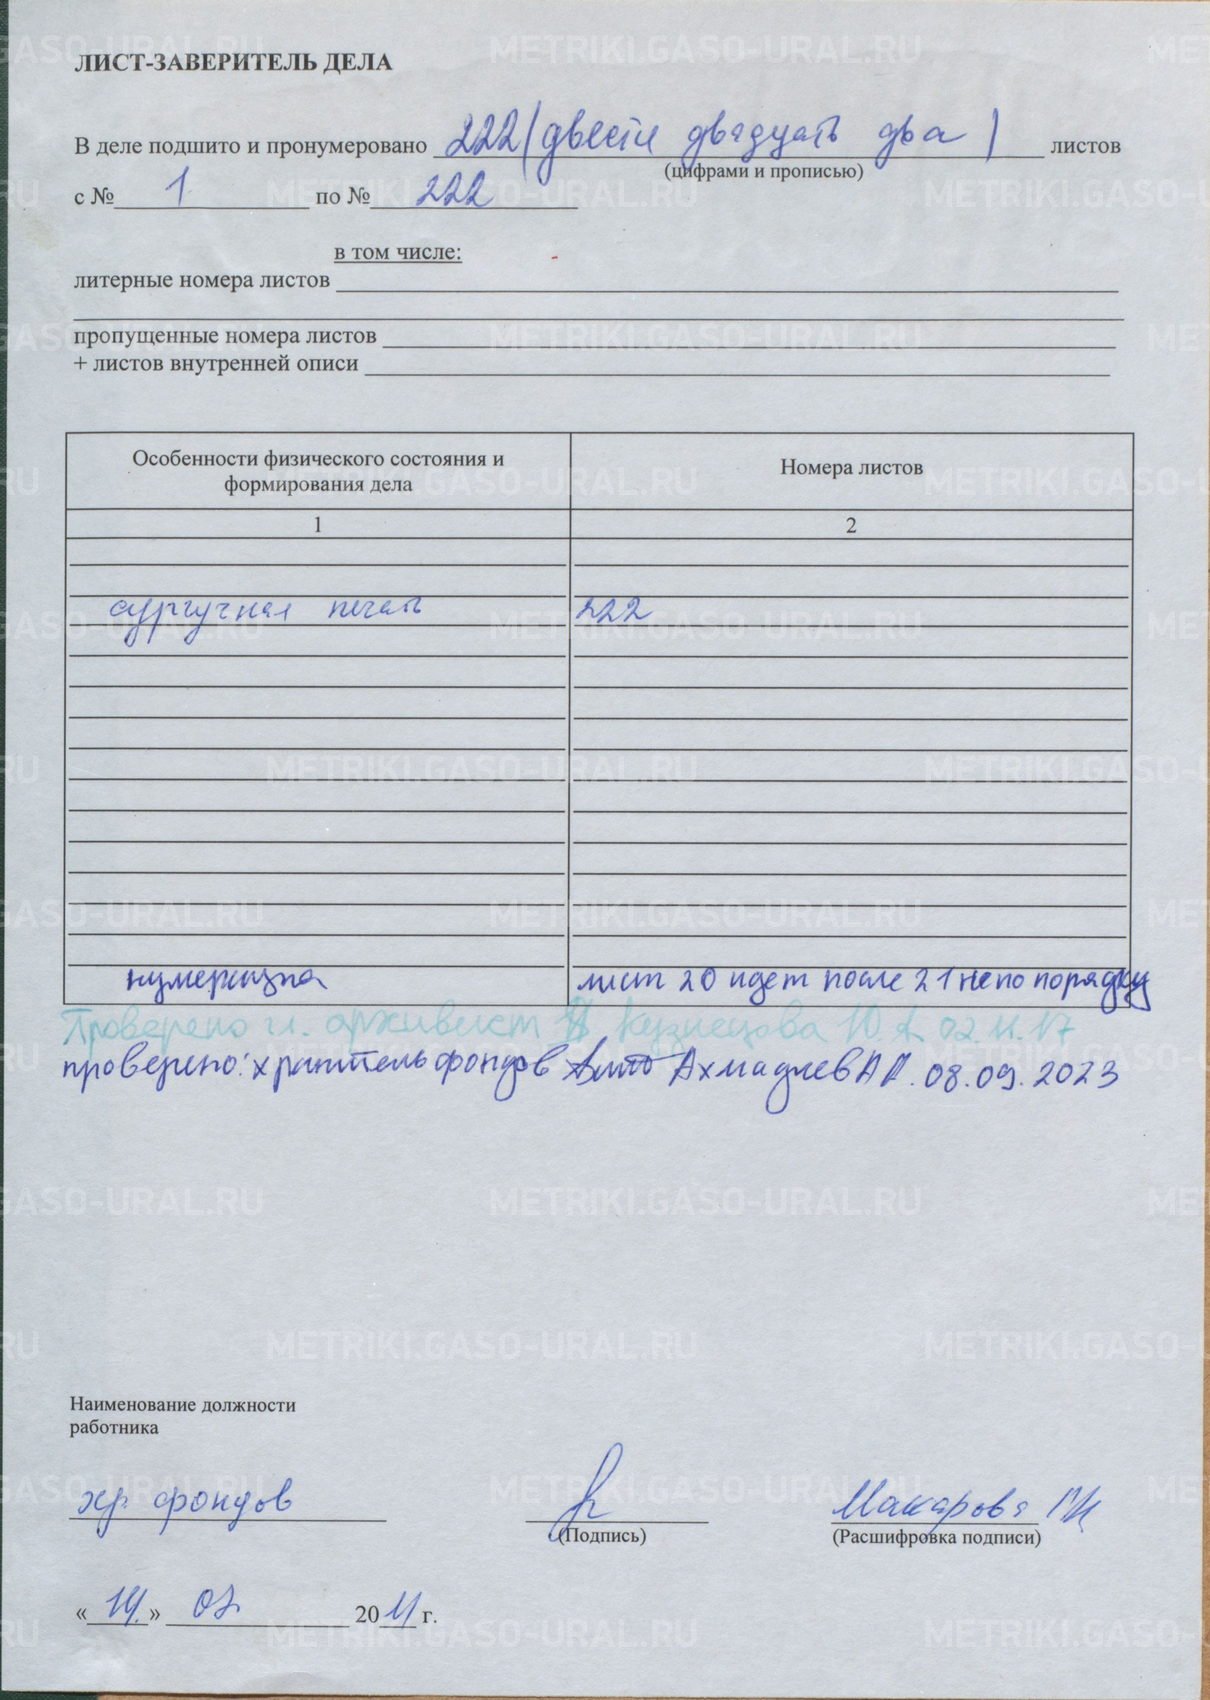 ЛИСТ-ЗАВЕРИТЕЛЬ ДЕЛА
В деле подшито и пронумеровано 222 (двести двадцать два) листов
(цифрами и прописью)
с № 1 по № 222
в том числе:
литерные номера листов
пропущенные номера листов
+ листов внутренней описи
Особенности физического состояния и формирования дела
Номера листов
1 2
сургучная печать 222
нумерация лист 20 идет после 21 не по порядку
Проверено гл. архивист Кузнецова Ю. А. 02.11.17
проверено: хранитель фондов Ахмадиев А Д. 08.09.2023
Наименование должности
работника
хр. фондов Макарова
(Подпись) (Расшифровка подписи)
«14.» 07. 2011 г.
METRIKI.GASO-URAL.RU